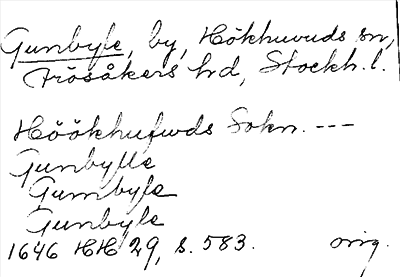 Gunbyle, by, Hökhuvuds sn,
Frösåkers hd, Stockh. l.
Höökhufwds Sokn. ---
Gunbylle
Gumbyle
Gunbyle
1646 HH 29, s. 583. orig.